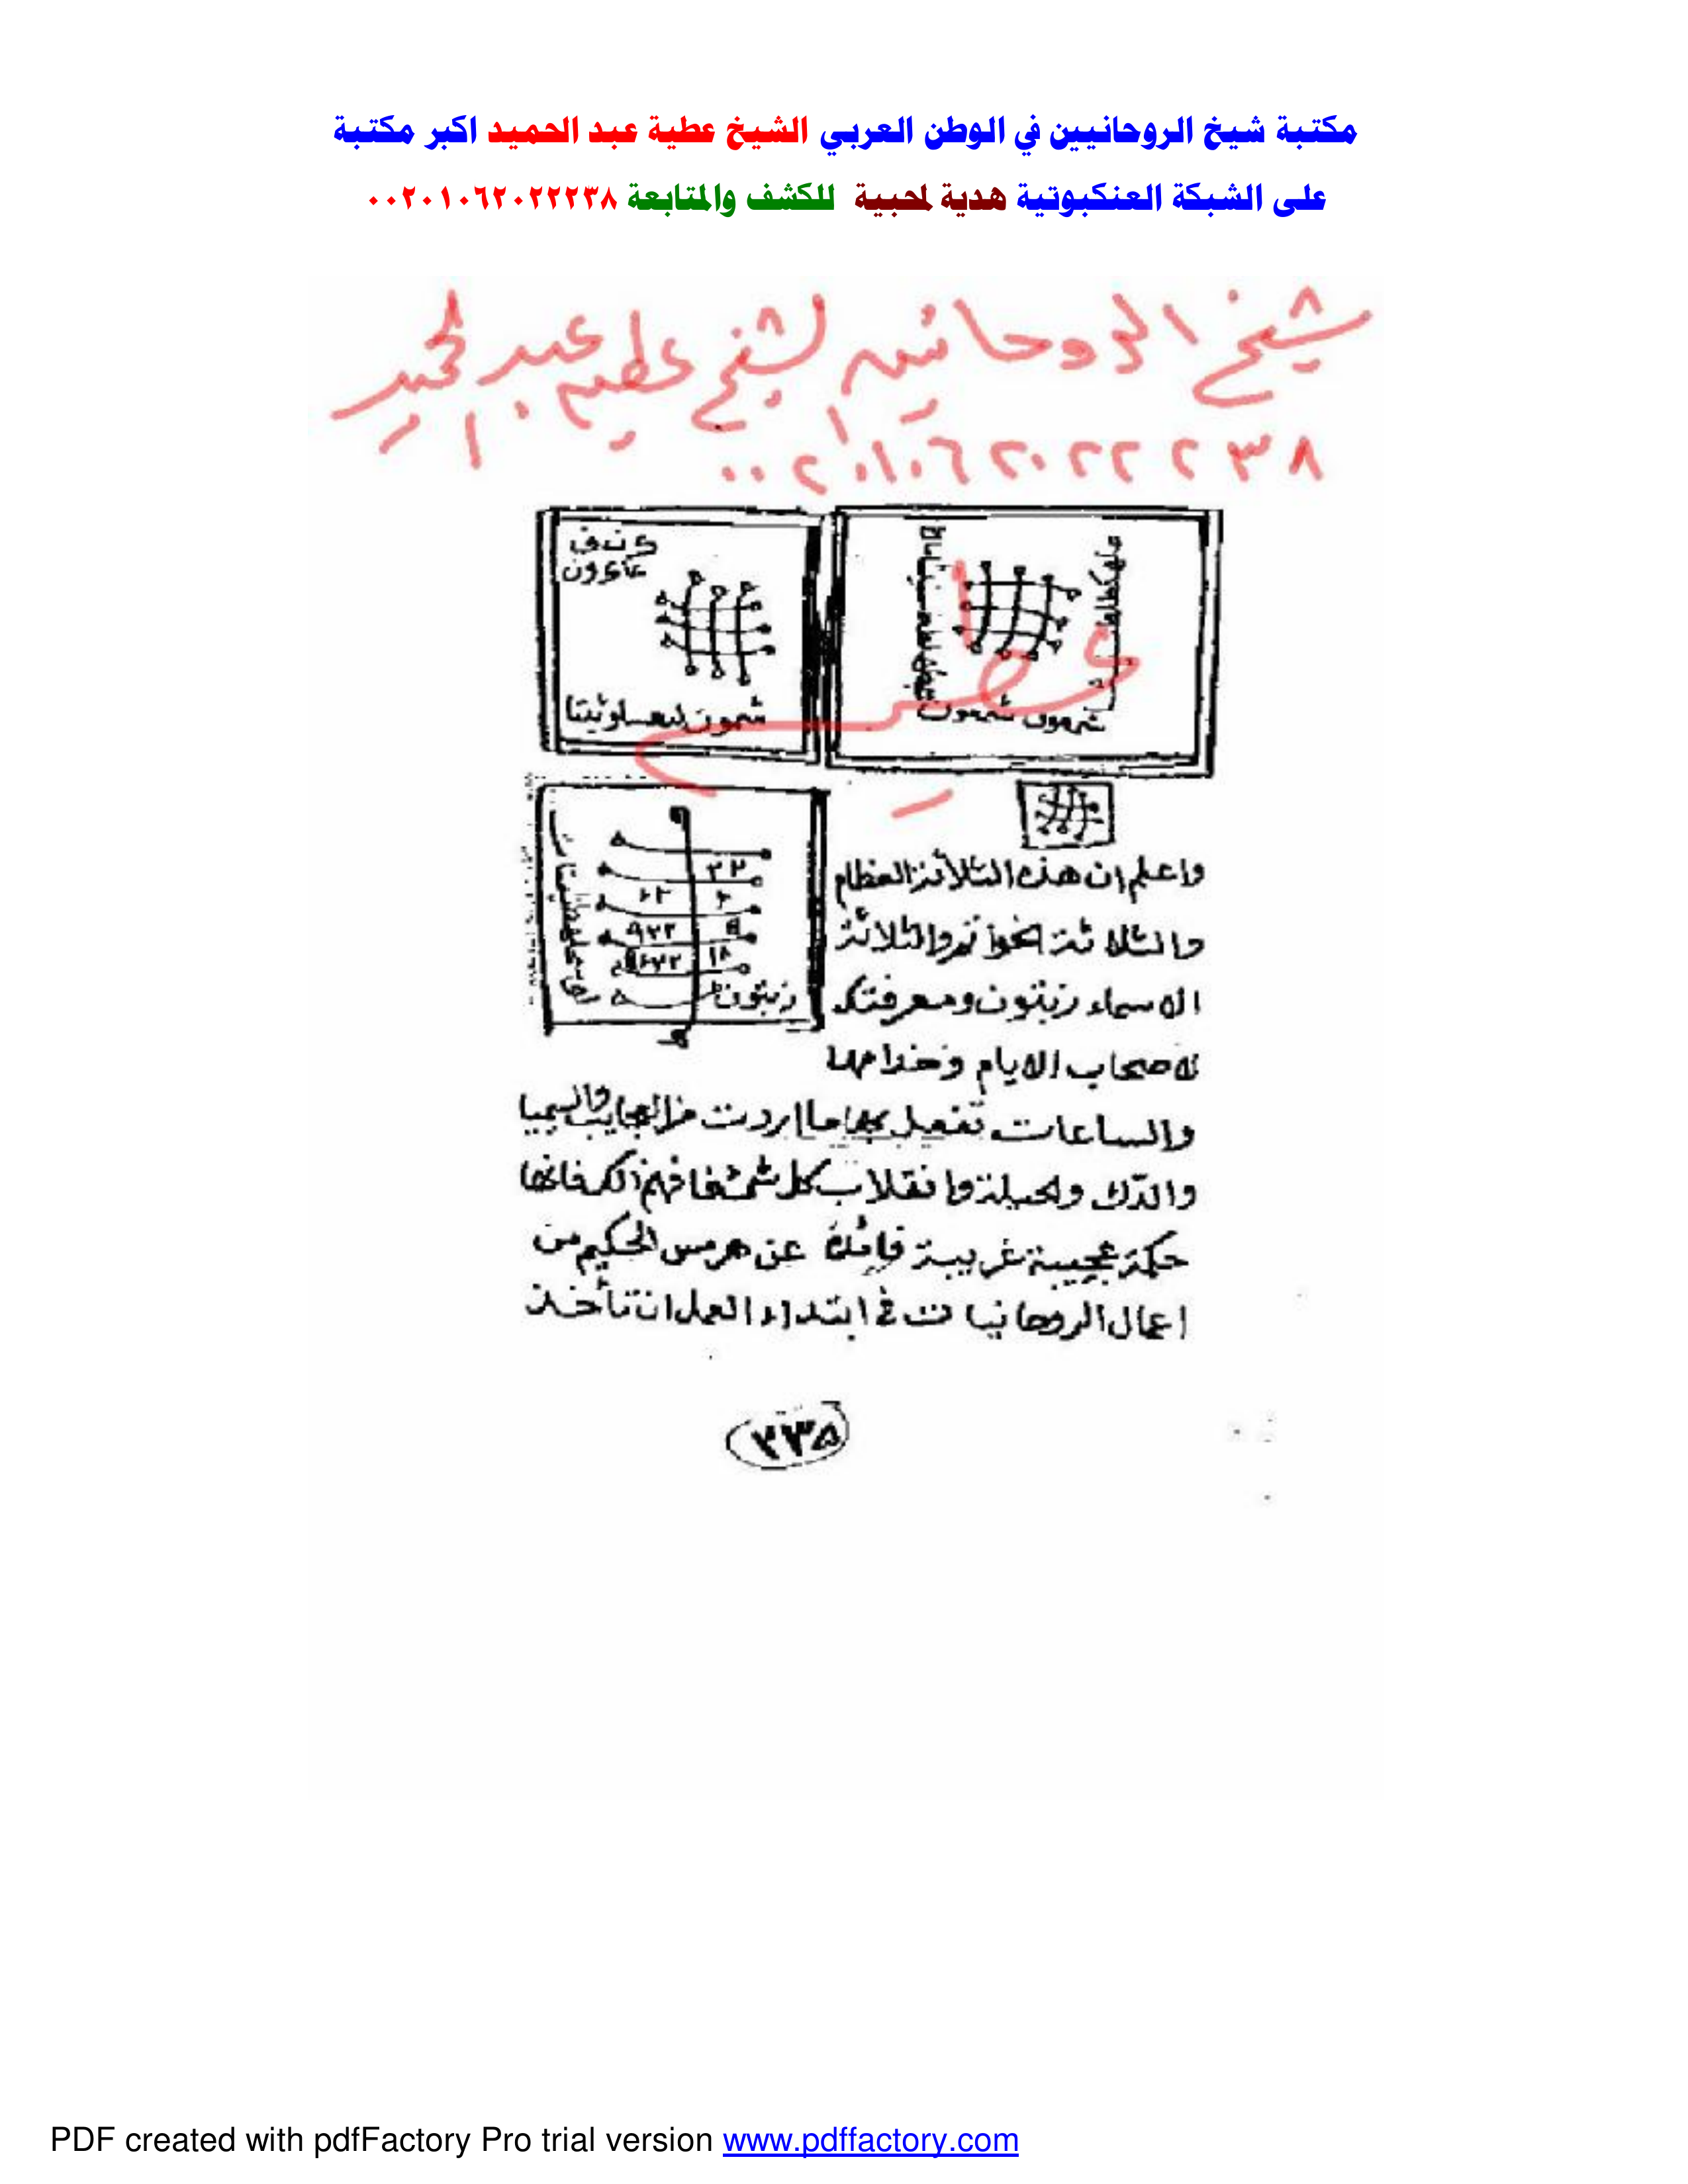 مكتبة شيخ الروحانيين في الوطن العربي الشيخ عطية عبد الحميد اكبر مكتبة
على الشبكة العنكبوتية هدية لمحبية للكشف والمتابعة ٠٠٢٠١٠٦٢٠٢٢٢٣٨
شيخ الروحانيين الشيخ عطيه عبد الحميد
٠٠٢٠١٠٦٢٠٢٢٢٣٨
شمعون شمعون
عطيه
زيتون
٢٢
٩٢٢
١٨
واعلم ان هذه الثلاثة العظام
والثلاثة الخواتم والثلاثة
الاسماء زيتون ومعرفتك
لاصحاب الايام وخدامها
والساعات تفعل بها ما اردت من العجايب والسيميا
والدك والحيلة وانقلاب كل شئ فافهم ذلك فانها
حكمة عجيبة غريبة فائدة عن هرمس الحكيم من
اعمال الروحانيات في ابتداء العمل ان تأخذ
٢٣٥
PDF created with pdfFactory Pro trial version www.pdffactory.com